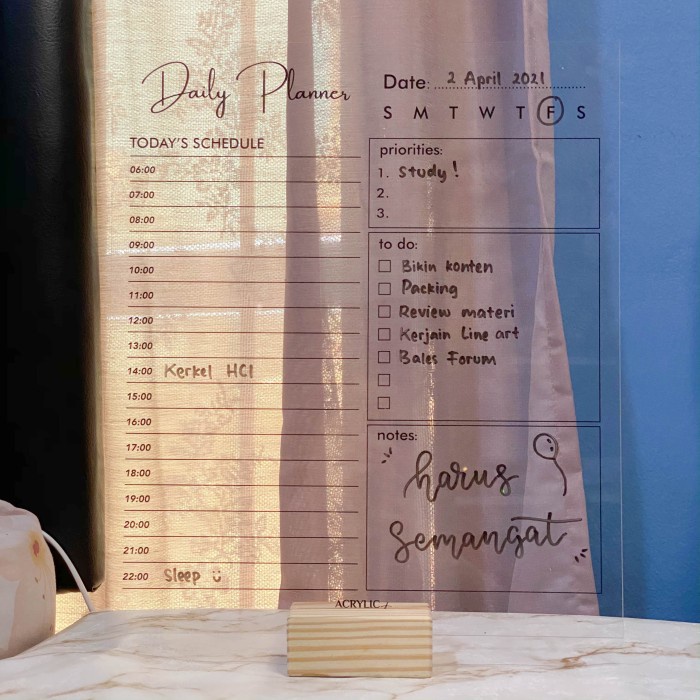 Daily Planner
Date: 2 April 2021
S M T W T F S
TODAY'S SCHEDULE
06:00
07:00
08:00
09:00
10:00
11:00
12:00
13:00
14:00 Kerkel HCI
15:00
16:00
17:00
18:00
19:00
20:00
21:00
22:00 Sleep
priorities:
1. Study!
2.
3.
to do:
Bikin konten
Packing
Review materi
Kerjain Line art
Bales Forum
notes:
harus
semangat
ACRYLIC